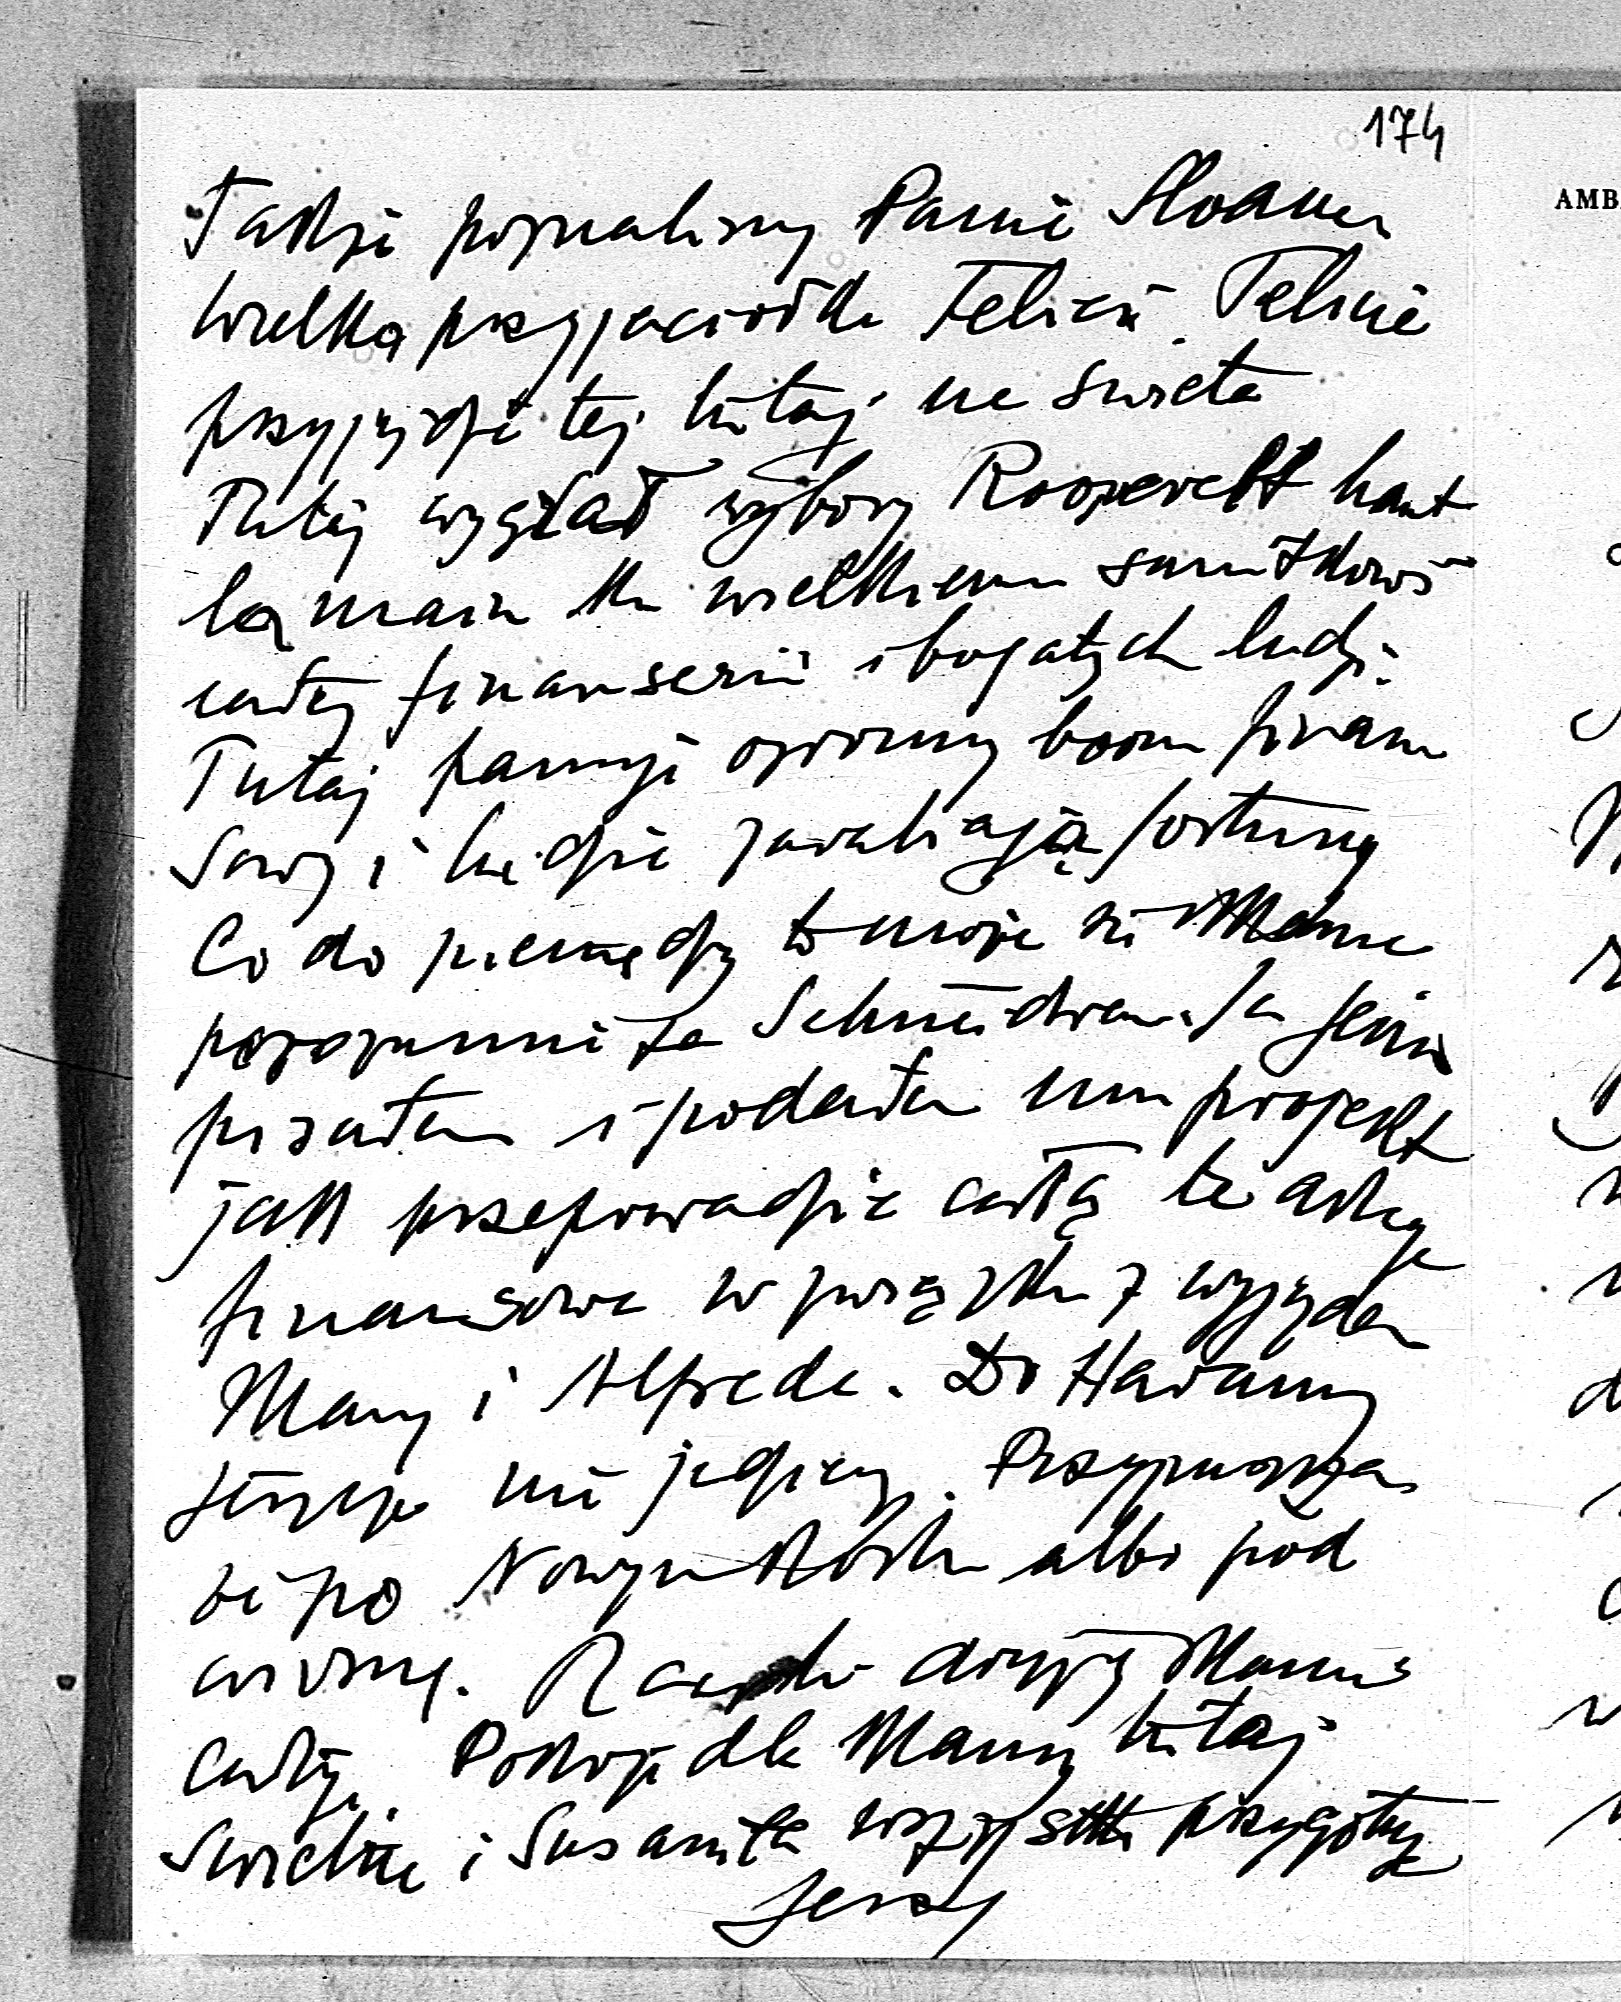 174
Także poznaliśmy Panią Sloan
wielką przyjaciółkę Felicii. Felicie
przyjedzie też tutaj na święta
Tutaj wygrał wybory Roosevelt haut
la main ku wielkiemu smutkowi
całej finanserii i bogatych ludzi.
Tutaj panuje ogromny boom finan
sowy i ludzie zarabiają fortuny
Co do pieniędzy to może się Mama
porozumie ze Schneidrem. Ja jemu
pisałem i podałem mu projekt
jak przeprowadzić całą tę akcję
finansową w związku z wyjazdem
Mamy i Alfreda. Do Havany
jeszcze nie jedziemy. Przypuszczam
że po Nowym Roku albo pod
wiosnę. Rączki drogiej Mamusi
całuję. Pokoje dla Mamy tutaj
świetne i Susanita wszystko przygotuje
Jerzy
AMB